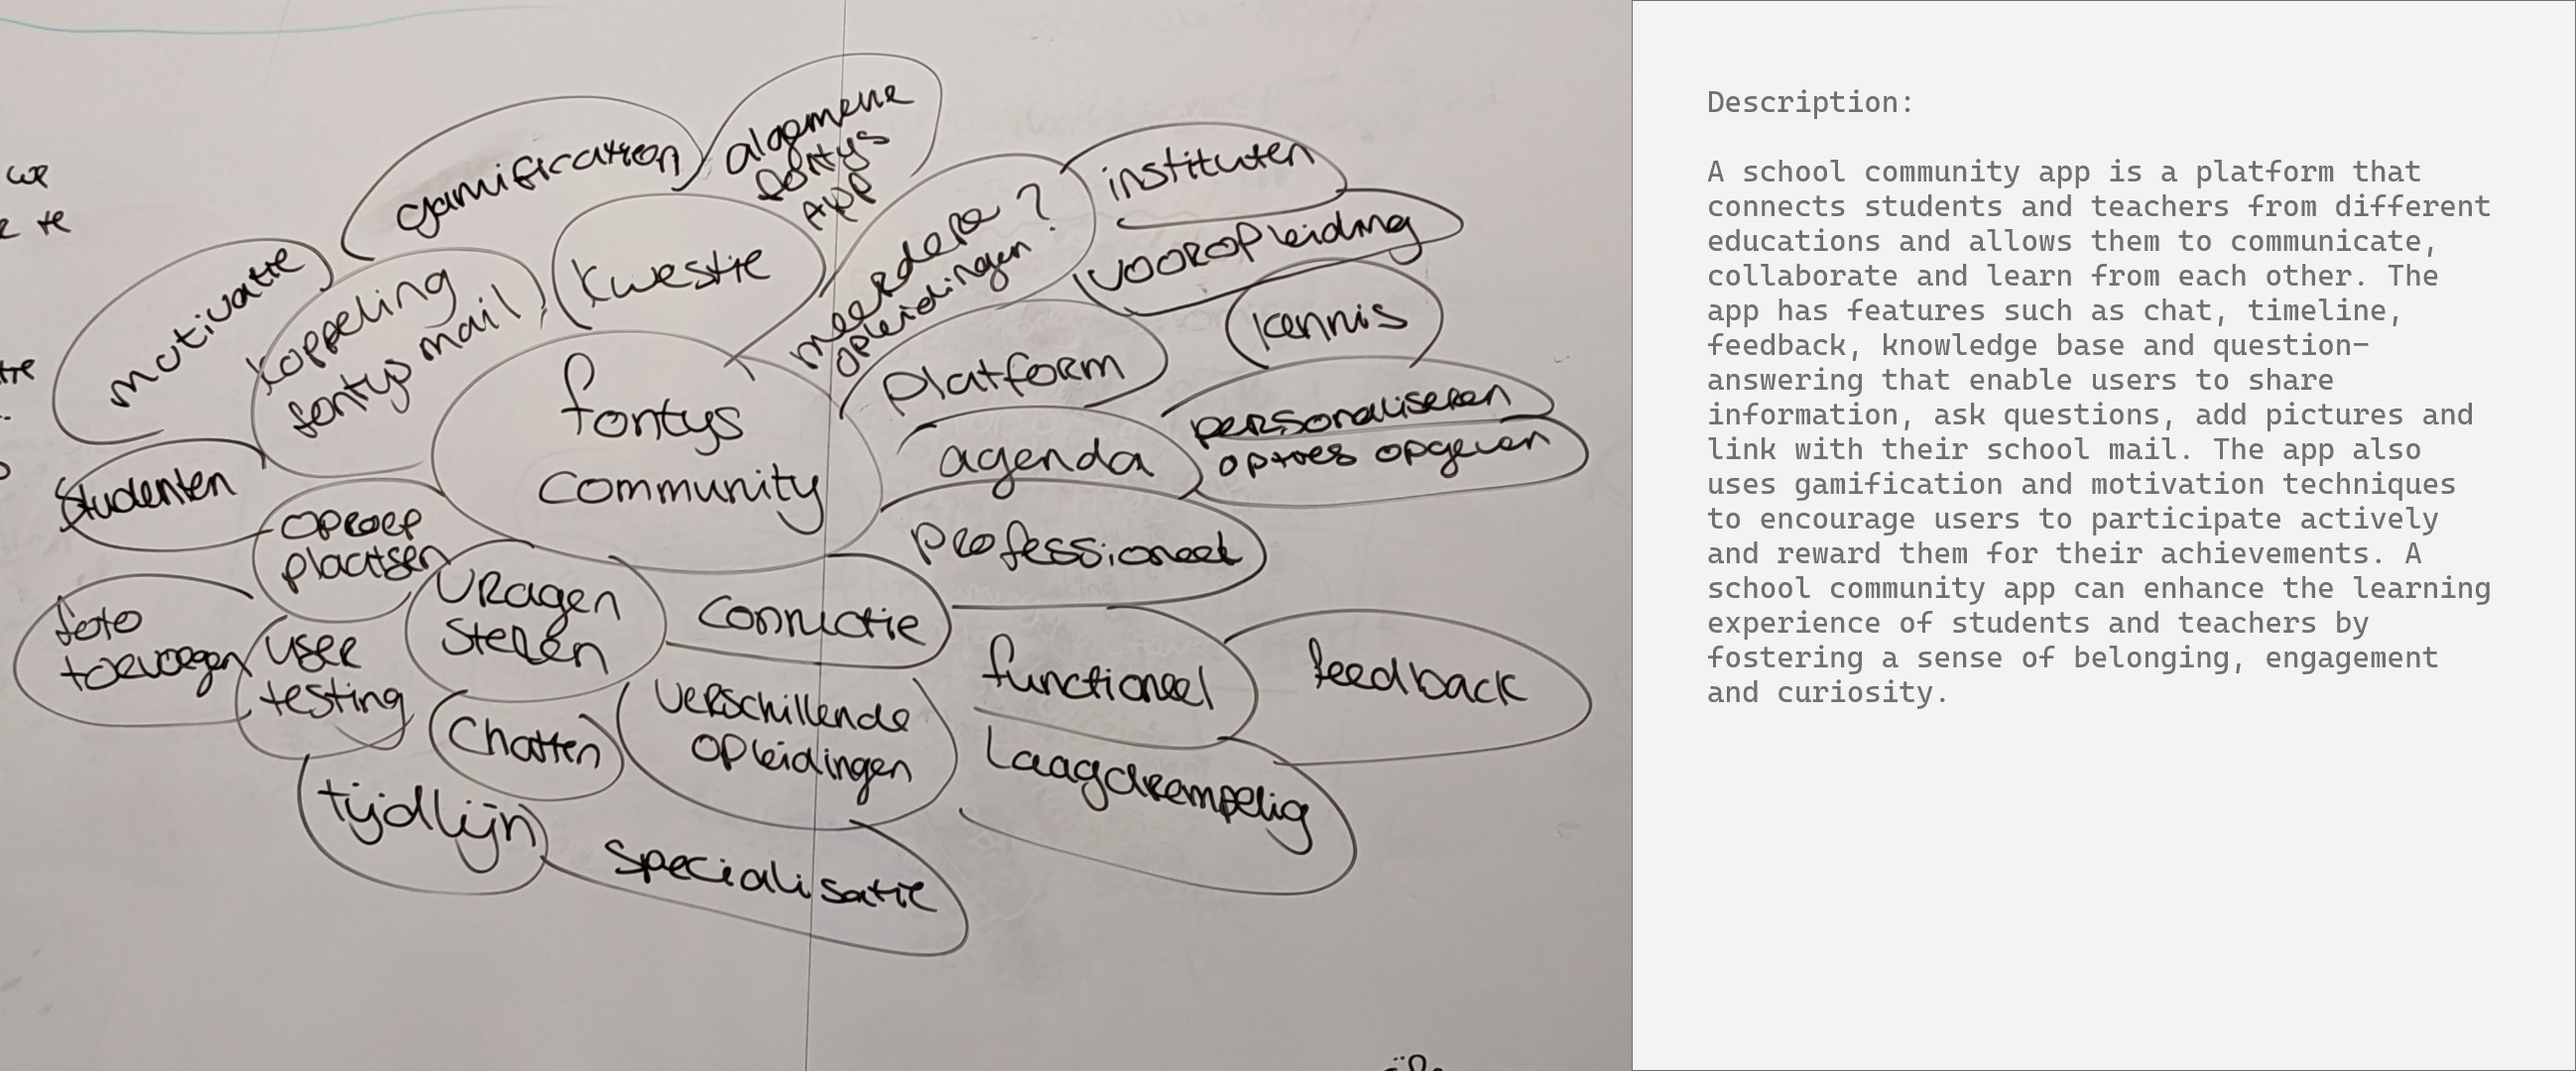 we
te
gamification
algemene
fontys
APP
meerdere ?
opleidingen
instituten
vooropleiding
motivatie
koppeling
fontys mail
kwestie
kennis
platform
personaliseren
opties opgeven
agenda
fontys
community
studenten
oproep
plaatsen
professioneel
vragen
stellen
connectie
foto
toevoegen
user
testing
functioneel
feedback
chatten
verschillende
opleidingen
Laagdrempelig
tijdlijn
specialisatie
Description:
A school community app is a platform that
connects students and teachers from different
educations and allows them to communicate,
collaborate and learn from each other. The
app has features such as chat, timeline,
feedback, knowledge base and question-
answering that enable users to share
information, ask questions, add pictures and
link with their school mail. The app also
uses gamification and motivation techniques
to encourage users to participate actively
and reward them for their achievements. A
school community app can enhance the learning
experience of students and teachers by
fostering a sense of belonging, engagement
and curiosity.